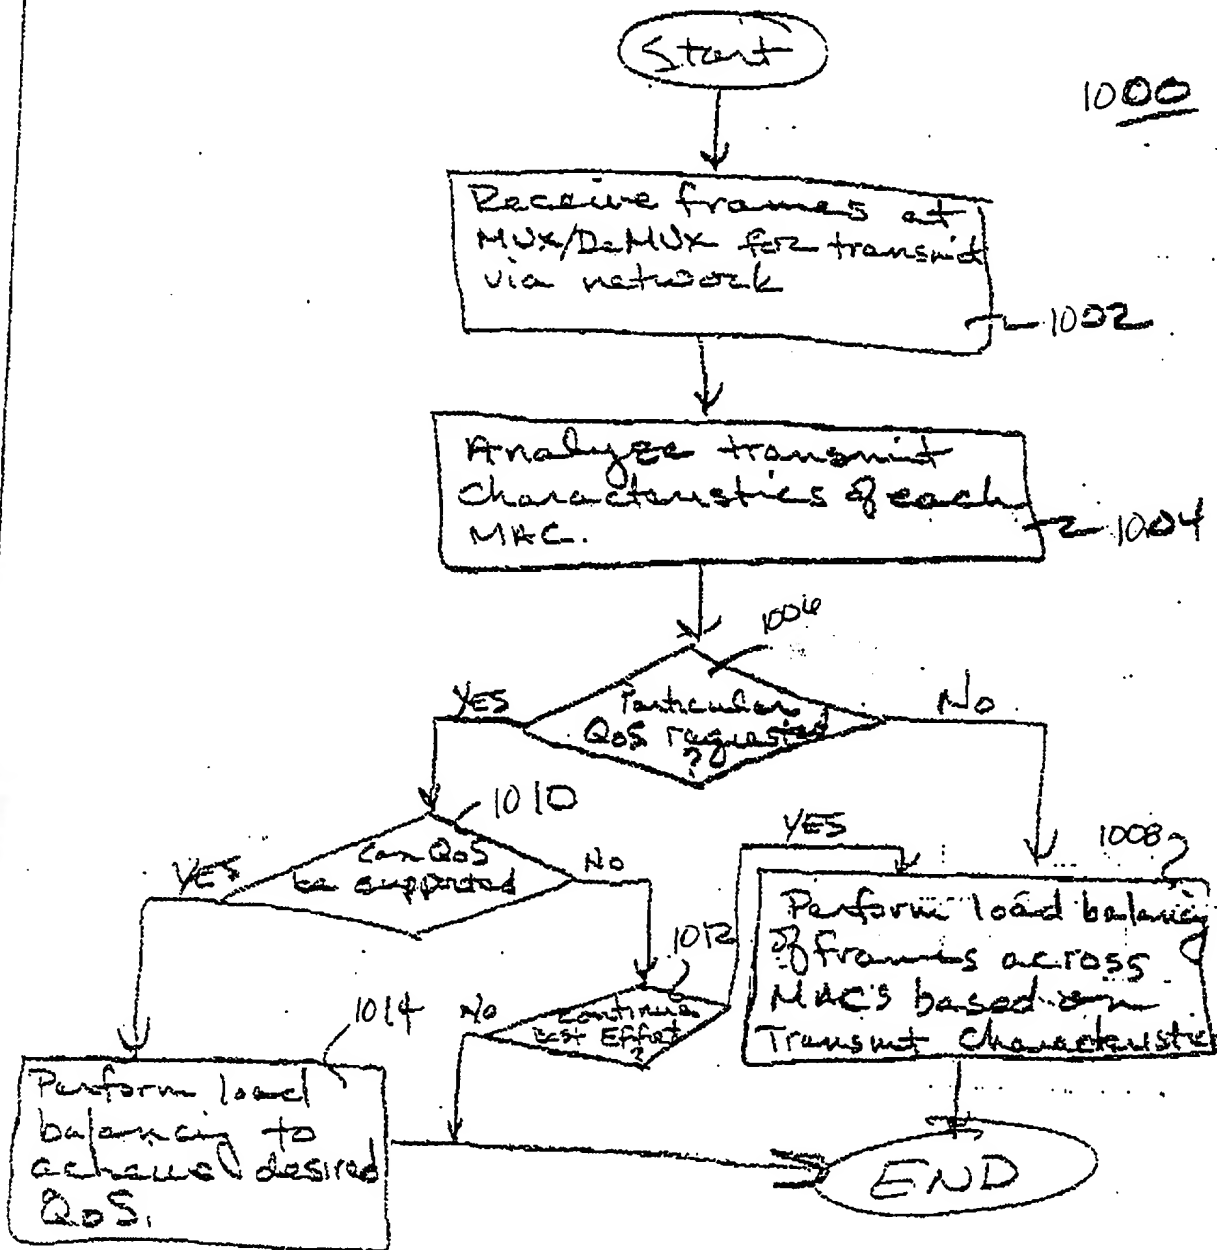 Start
1000
Receive frames at
MUX/DeMUX for transmit
via network
1002
Analyze transmit
characteristics of each
MAC.
1004
1006
YES
Particular
QoS requested
?
No
1010
Can QoS
be supported
YES
No
YES
1008
Perform load balancing
of frames across
MAC's based on
Transmit Characteristic
1012
Continue
Best Effort
?
No
1014
Perform load
balancing to
achieve desired
QoS.
END